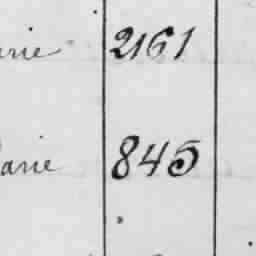 rie 2161
arie 845